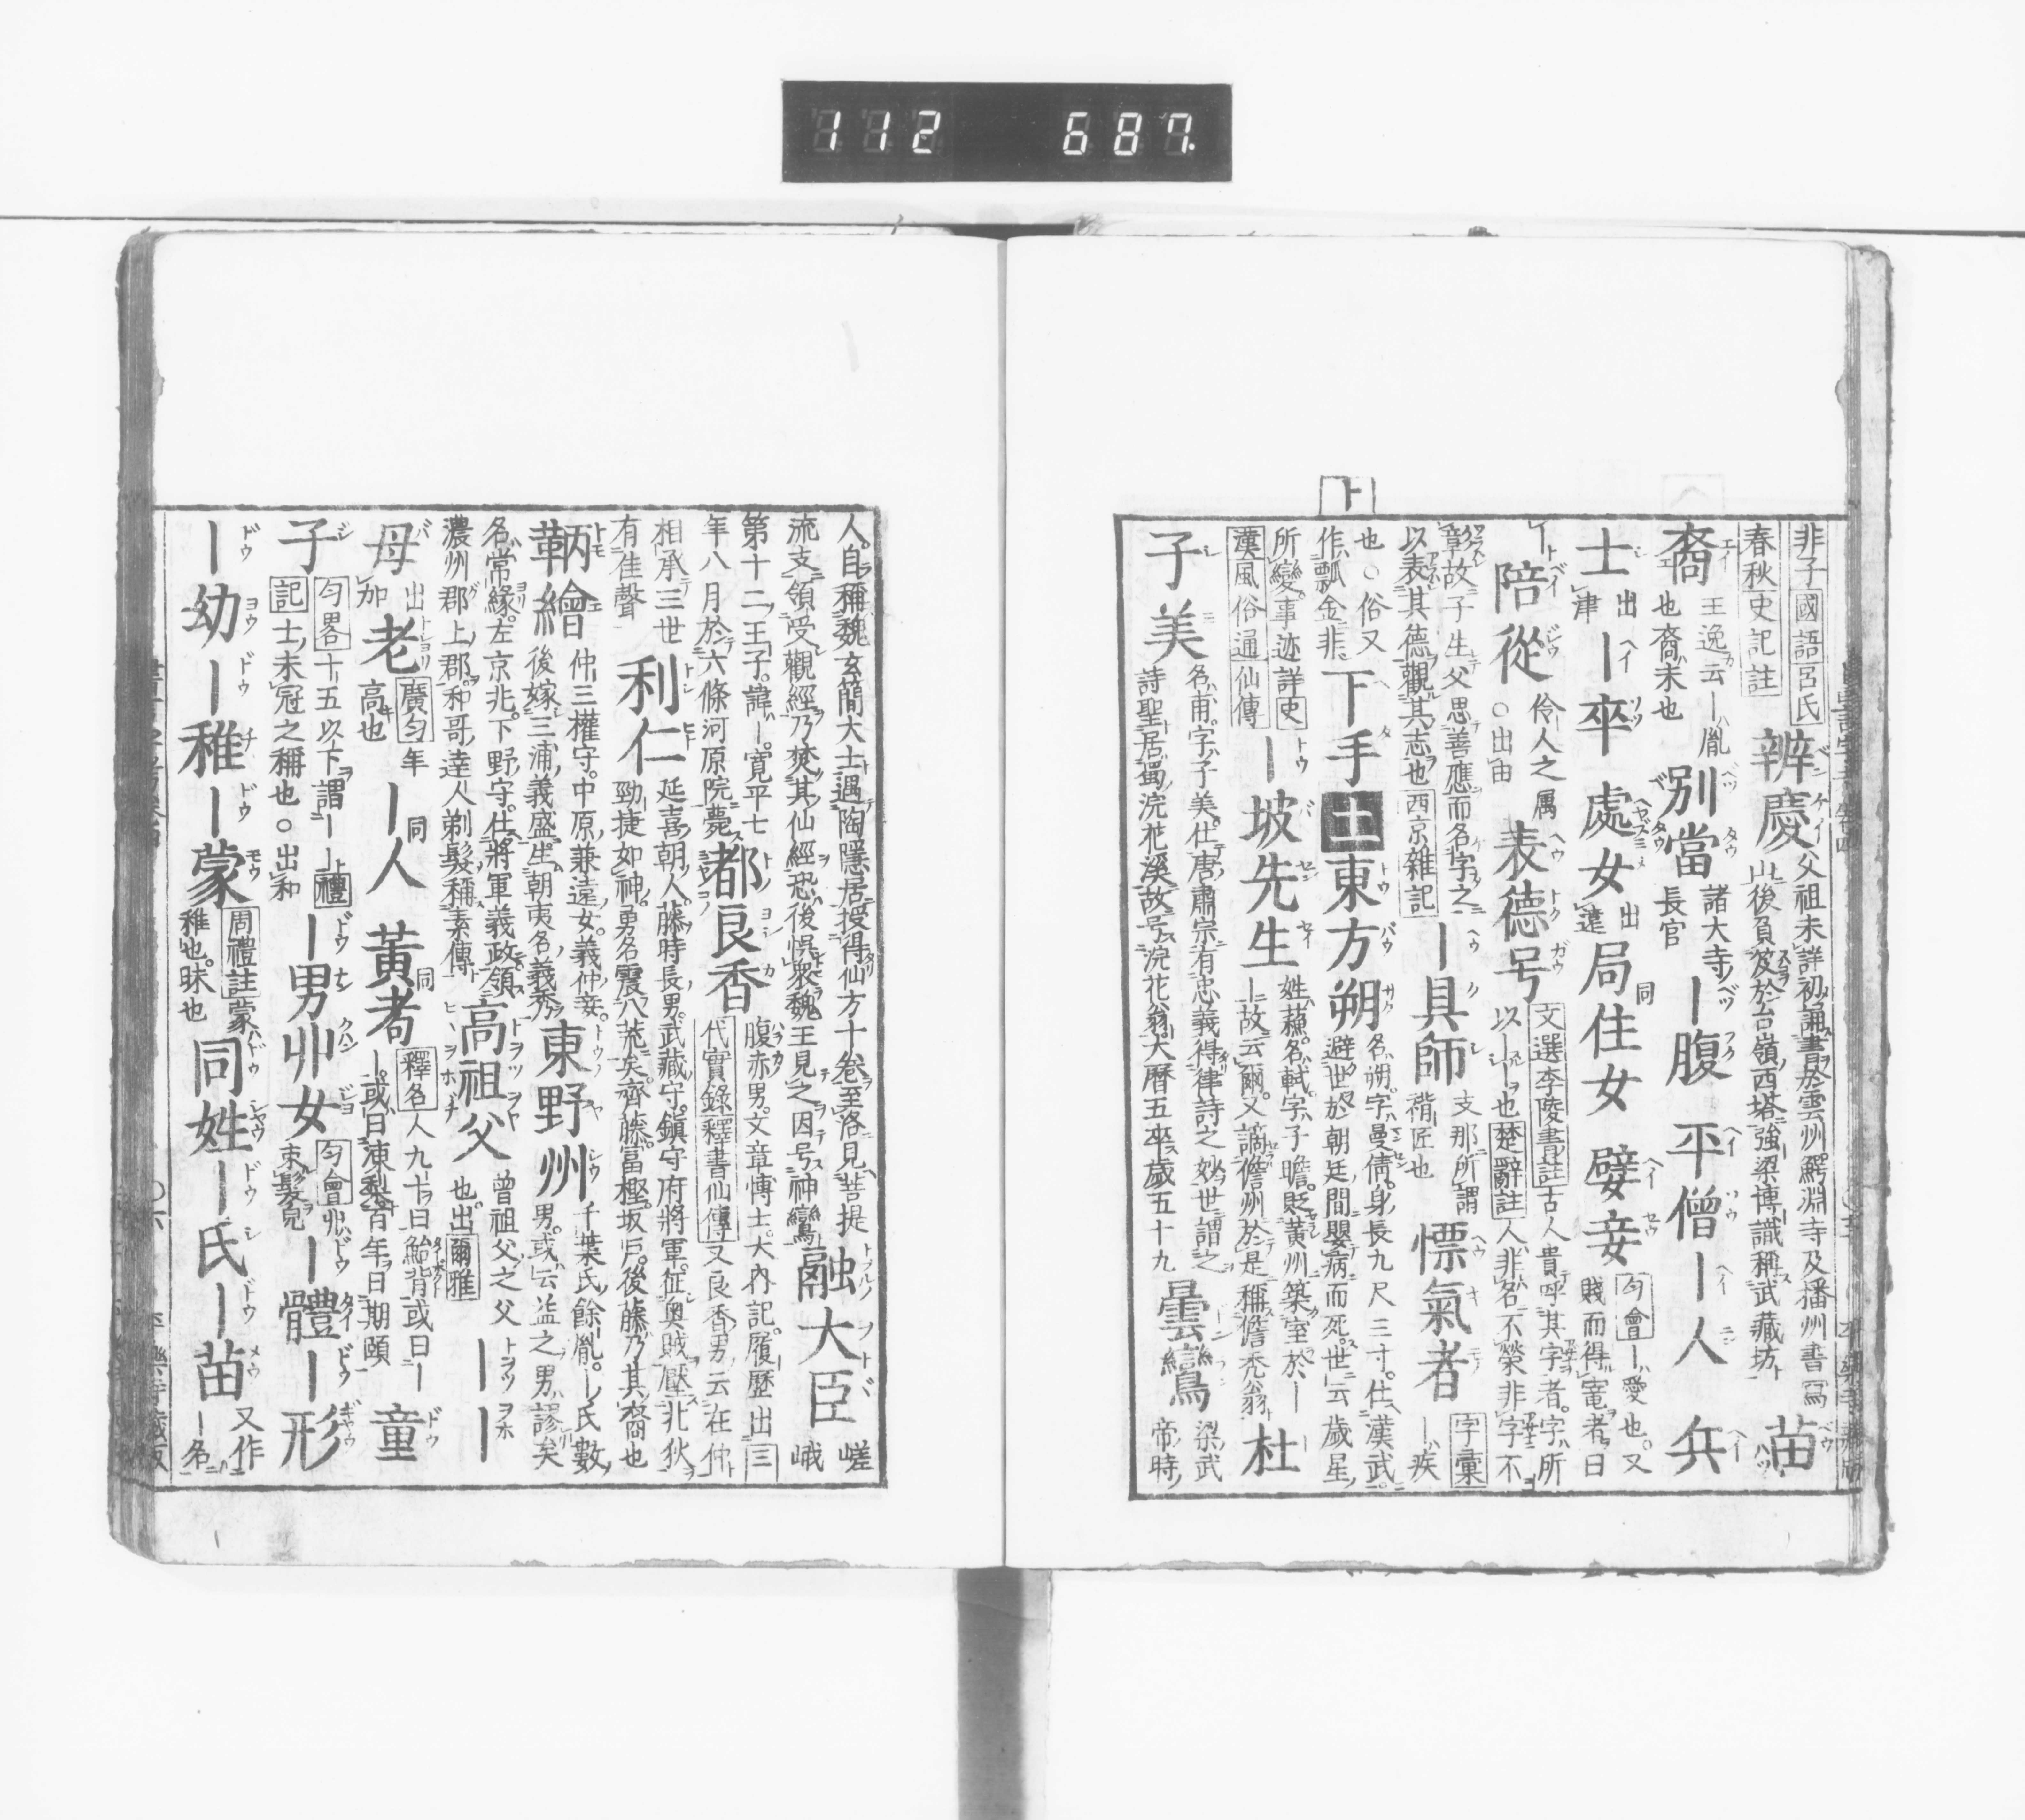 112 687
ト
非子國語呂氏
春秋史記註
辨慶
父祖未詳初誦書於雲州鰐淵寺及播州書寫
山後負笈於台嶺西塔強梁博識稱武藏坊
苗
裔
王逸云ー胤
也裔末也
別當
諸大寺
長官
ー腹 平僧 ー人 兵
士
出
津
ー卒 處女
出
遠
局
同
住女 嬖妾
匀會ー愛也又
賤而得寵者曰
ー
陪從
伶人之属
○出由
表德号
文選李陵書註古人貴呼其字者字所
以ーー也楚辭註人非名不榮非字不
彰故子生父思善應而名字之
以表其德觀其志也西京雜記
ー具師
支那所謂
褙匠也
慓氣者
字彙
ー疾
也○俗又
作瓢金非
下手
土
東方朔
名朔字曼倩身長九尺三寸仕漢武
避世於朝廷間嬰病而死世云歲星
所變事迹詳史
漢風俗通仙傳
ー坡先生
姓蘇名軾字子瞻貶黃州築室於ー
ー故云爾又謫儋州於是稱儋禿翁
杜
子美
名甫字子美仕唐肅宗有忠義得律詩之妙世謂之
詩聖居蜀浣花溪故号浣花翁大曆五卒歲五十九
曇鸞
梁武
帝時
人自稱魏玄簡大士遇陶隱居授得仙方十卷至洛見菩提
流支領受觀經乃焚其仙經恐後悞衆魏王見之因号神鸞
融大臣
嵯
峨
第十二王子諱ー寛平七
年八月於六條河原院薨
都良香
腹赤男文章博士大内記履歷出三
代實錄釋書仙傳又良香男云在仲
相承三世
有佳聲
利仁
延喜朝人藤時長男武藏守鎮守府將軍征奥賊壓北狄
勁捷如神勇名震八荒矣齊藤富樫坂戸後藤乃其裔也
鞆繪
仲三權守中原兼遠女義仲妾
後嫁三浦義盛生朝夷名義秀
東野州
千葉氏餘胤ー氏數
男或云益之男謬矣
名常緣左京兆下野守仕將軍義政領
濃州郡上郡和哥達人剃髮稱素傳
高祖父
曾祖父之父
也出爾雅
ーー
母
出
加
老
廣匀年
高也
ー人
同
黃耇
同
釋名人九十曰鮐背或曰ー
ー或曰凍梨百年曰期頤
童
子
匀畧十五以下謂ー上禮
記士未冠之稱也○出和
ー男丱女
匀會丱
束髮皃
ー體ー形
ー幼ー稚ー蒙
周禮註蒙
稚也昧也
同姓ー氏ー苗
又作
ー名